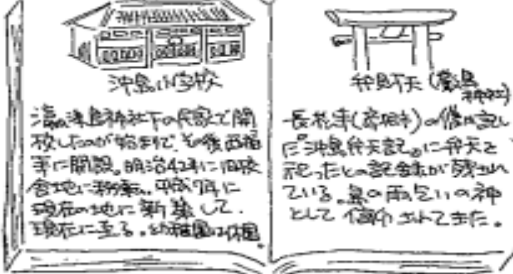 沖島小学校
瀛津島神社下の民家で開
校したのが始まりで、その後西福
寺に開設。明治42年に旧校
舎地に移転。平成7年に
現在の地に新築して、
現在に至る。幼稚園は休園
弁財天(厳島神社)
長命寺()の僧が記し
た『沖島弁天記』に弁天を
祀ったとの記録が残され
ている。島の雨乞いの神
として信仰されてきた。